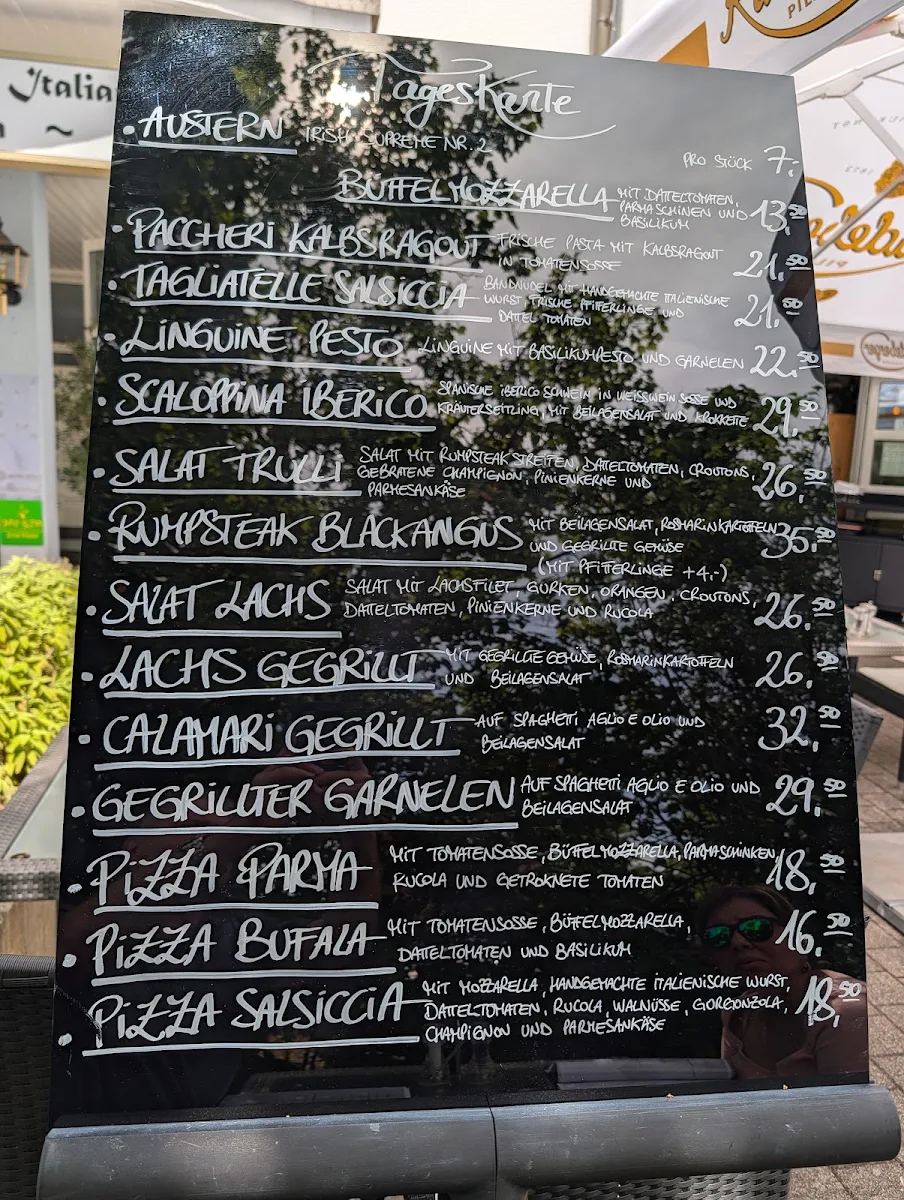 Italia
TagesKarte
• AUSTERN IRISH SUPREME NR. 2
PRO STÜCK 7,-
BÜFFELMOZZARELLA MIT DATTELTOMATEN,
PARMASCHINEN UND
BASILIKUM 13,50
• PACCHERI KALBSRAGOUT FRISCHE PASTA MIT KALBSRAGOUT
IN TOMATENSOSSE 21,50
• TAGLIATELLE SALSICCIA BANDNUDEL MIT HANDGEMACHTE ITALIENISCHE
WURST, FRISCHE PFIFFERLINGE UND
DATTEL TOMATEN 21,50
• LINGUINE PESTO LINGUINE MIT BASILIKUMPESTO UND GARNELEN 22,50
• SCALOPPINA IBERICO SPANISCHE IBERICO SCHWEIN IN WEISSWEIN SOSSE UND
KRÄUTERSEITLING, MIT BEILAGENSALAT UND KROKKETE 29,50
• SALAT TRULLI SALAT MIT RUMPSTEAK STREIFEN, DATELTOMATEN, CROUTONS,
GEBRATENE CHAMPIGNON, PINIENKERNE UND
PARMESANKÄSE 26,50
• RUMPSTEAK BLACKANGUS MIT BEILAGENSALAT, ROSMARINKARTOFFELN
UND GEGRILLTE GEMÜSE
(MIT PFIFFERLINGE +4,-) 35,50
• SALAT LACHS SALAT MIT LACHSFILET, GURKEN, ORANGEN, CROUTONS,
DATELTOMATEN, PINIENKERNE UND RUCOLA 26,50
• LACHS GEGRILLT MIT GEGRILLTE GEMÜSE, ROSMARINKARTOFFELN
UND BEILAGENSALAT 26,50
• CALAMARI GEGRILLT AUF SPAGHETTI AGLIO E OLIO UND
BEILAGENSALAT 32,50
• GEGRILLTER GARNELEN AUF SPAGHETTI AGLIO E OLIO UND
BEILAGENSALAT 29,50
• PIZZA PARMA MIT TOMATENSOSSE, BÜFFELMOZZARELLA, PARMASCHINKEN,
RUCOLA UND GETROKNETE TOMATEN 18,50
• PIZZA BUFALA MIT TOMATENSOSSE, BÜFFELMOZZARELLA,
DATELTOMATEN UND BASILIKUM 16,50
• PIZZA SALSICCIA MIT MOZZARELLA, HANDGEMACHTE ITALIENISCHE WURST,
DATTELTOMATEN, RUCOLA, WALNÜSSE, GORGONZOLA,
CHAMPIGNON UND PARMESANKÄSE 18,50